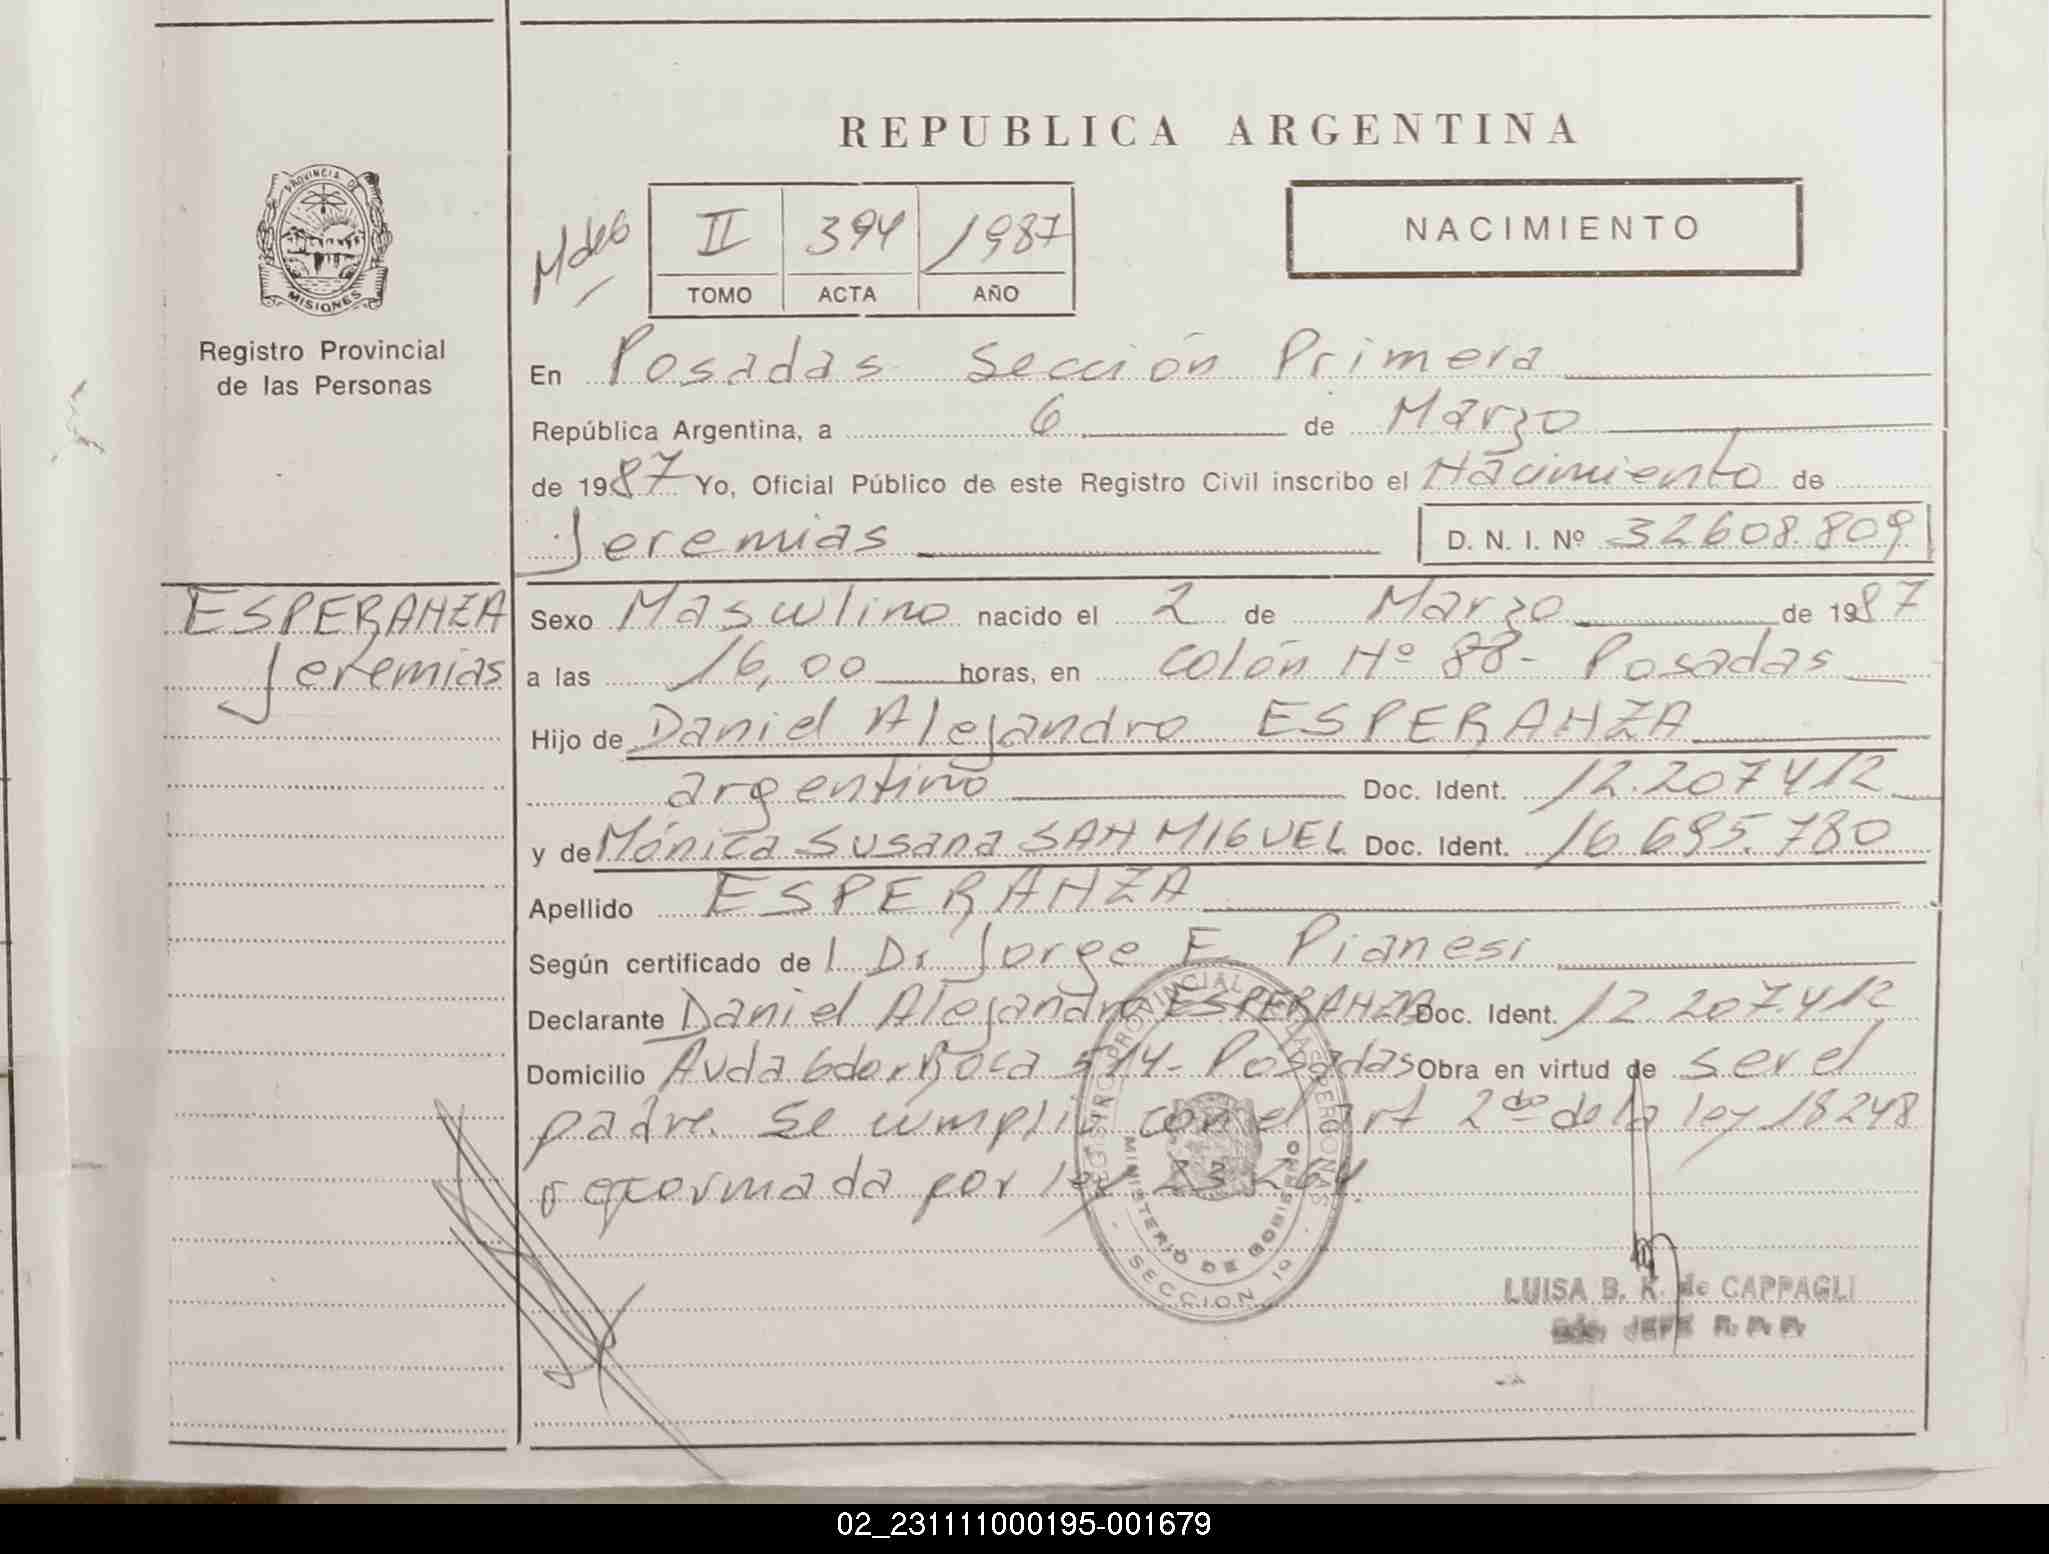 REPUBLICA ARGENTINA
PROVINCIA DE
MISIONES
Registro Provincial
de las Personas
II 394 1987
TOMO ACTA AÑO
NACIMIENTO
En Posadas Sección Primera
República Argentina, a 6 de Marzo
de 1987 Yo, Oficial Público de este Registro Civil inscribo el Nacimiento de
Jeremias D. N. I. Nº 32608.809
ESPERANZA
Jeremias
Sexo Masculino nacido el 2 de Marzo de 1987
a las 16,00 horas, en Colón Nº 88- Posadas
Hijo de Daniel Alejandro ESPERANZA
argentino Doc. Ident. 12.207412
y de Mónica Susana SAN MIGUEL Doc. Ident. 16.695.780
Apellido ESPERANZA
Según certificado de l Dr Jorge E Pianesi
Declarante Daniel Alejandro ESPERANZA Doc. Ident. 12.207.412
Domicilio Avda Gdor Roca 514- Posadas Obra en virtud de ser el
padre. Se cumplió con el art 2do de la ley 18248
reformada por ley 23.264.
REGISTRO PROVINCIAL DE LAS PERSONAS
MINISTERIO DE GOBIERNO
SECCION 1º
LUISA B. K. de CAPPAGLI
JEFE R. P. P.
02_231111000195-001679